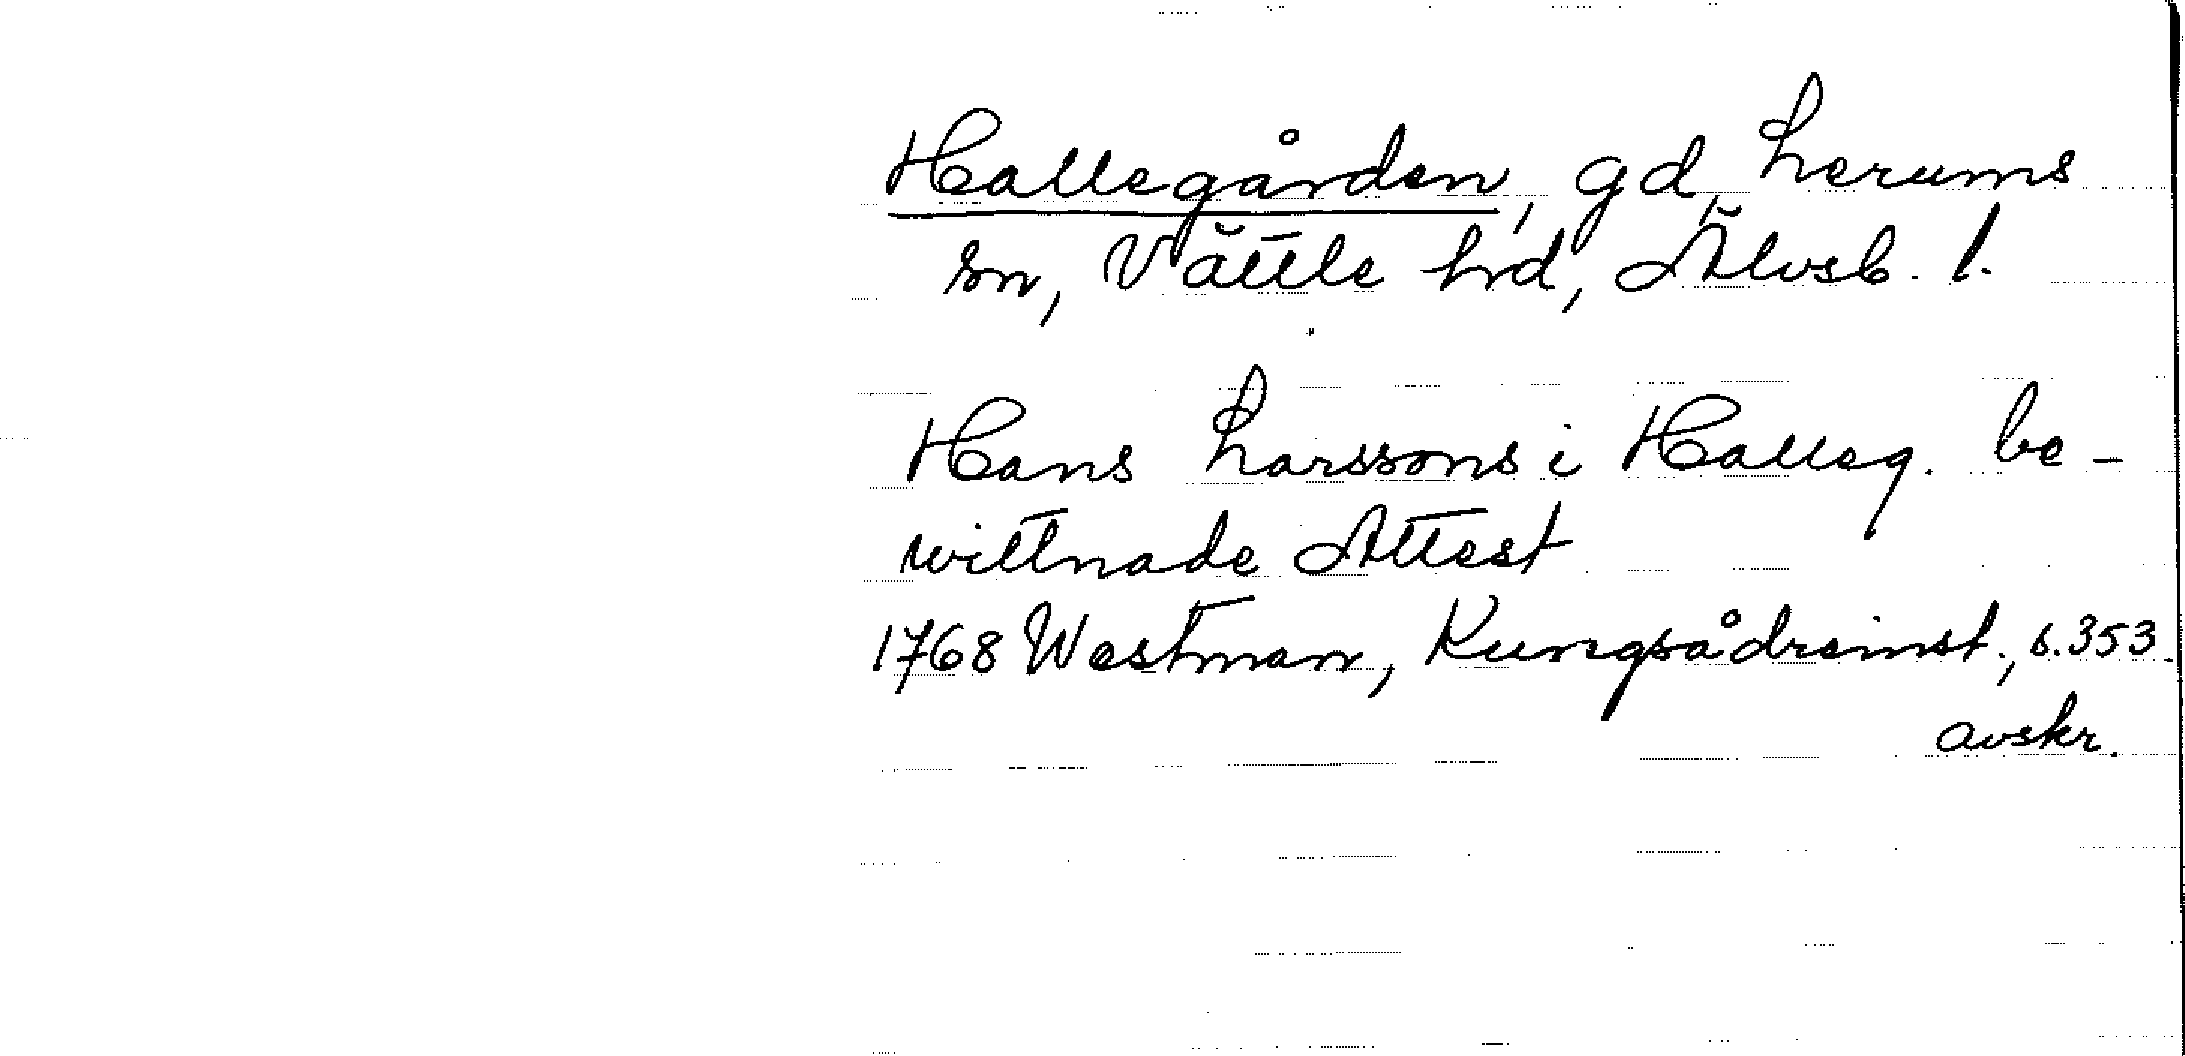 Hallegården, gd, Lerums
sn, Vättle hd, Älvsb. l.
Hans Larssons i Halleg. be-
wittnade Attest
1768 Westman, Kungsådreinst., s. 353.
avskr.